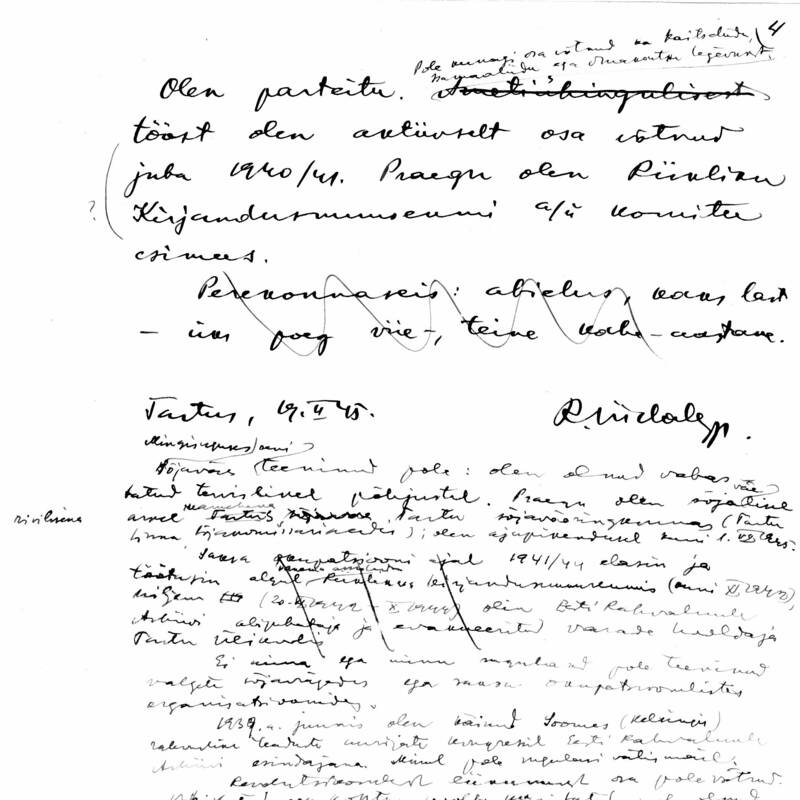 4
Pole kunagi osa võtnud ka Kaitseliidu,
Isamaaliidu ega Omakaitse tegevusest.
Olen parteitu. Ametiühingulisest
tööst olen aktiivselt osa võtnud
juba 1940/41. Praegu olen Riikliku
?
Kirjandusmuuseumi a/ü komitee
esimees.
Perekonnaseis: abielus, kaks last
– üks poeg viie-, teine kahe-aastane.
Tartus, 19. II 45.
R. Viidalepp.
Mingisuguses armees
Sõjaväes teeninud pole: olen olnud vabas-
tatud tervislikel põhjustel. Praegu olen sõjaväe
arvel Tartus Tartu sõjaväeringkonnas (Tartu
linna sõjakomissariaadis); olen ajapikendusel kuni 1. VII 1945.
Saksa okupatsiooni ajal 1941/44 elasin ja
töötasin algul Kirjandusmuuseumis (kuni XI 1942),
hiljem (20. XI 1942 - X 1944) olin Eesti Rahvaluule
Arhiivi abijuhataja ja evakueeritud varade hooldaja
Tartu Ülikoolis
Ei mina ega minu sugulased pole teeninud
valgete sõjavägedes ega saksa okupatsioonilistes
organisatsioonides.
1939. a. juunis olen käinud Soomes (Helsingis)
rahvusliku teaduste uurijate kongressil Eesti Rahvaluule
Arhiivi esindajana. Minul pole sugulasi välismail.
Revolutsioonilisest liikumisest osa pole võtnud.